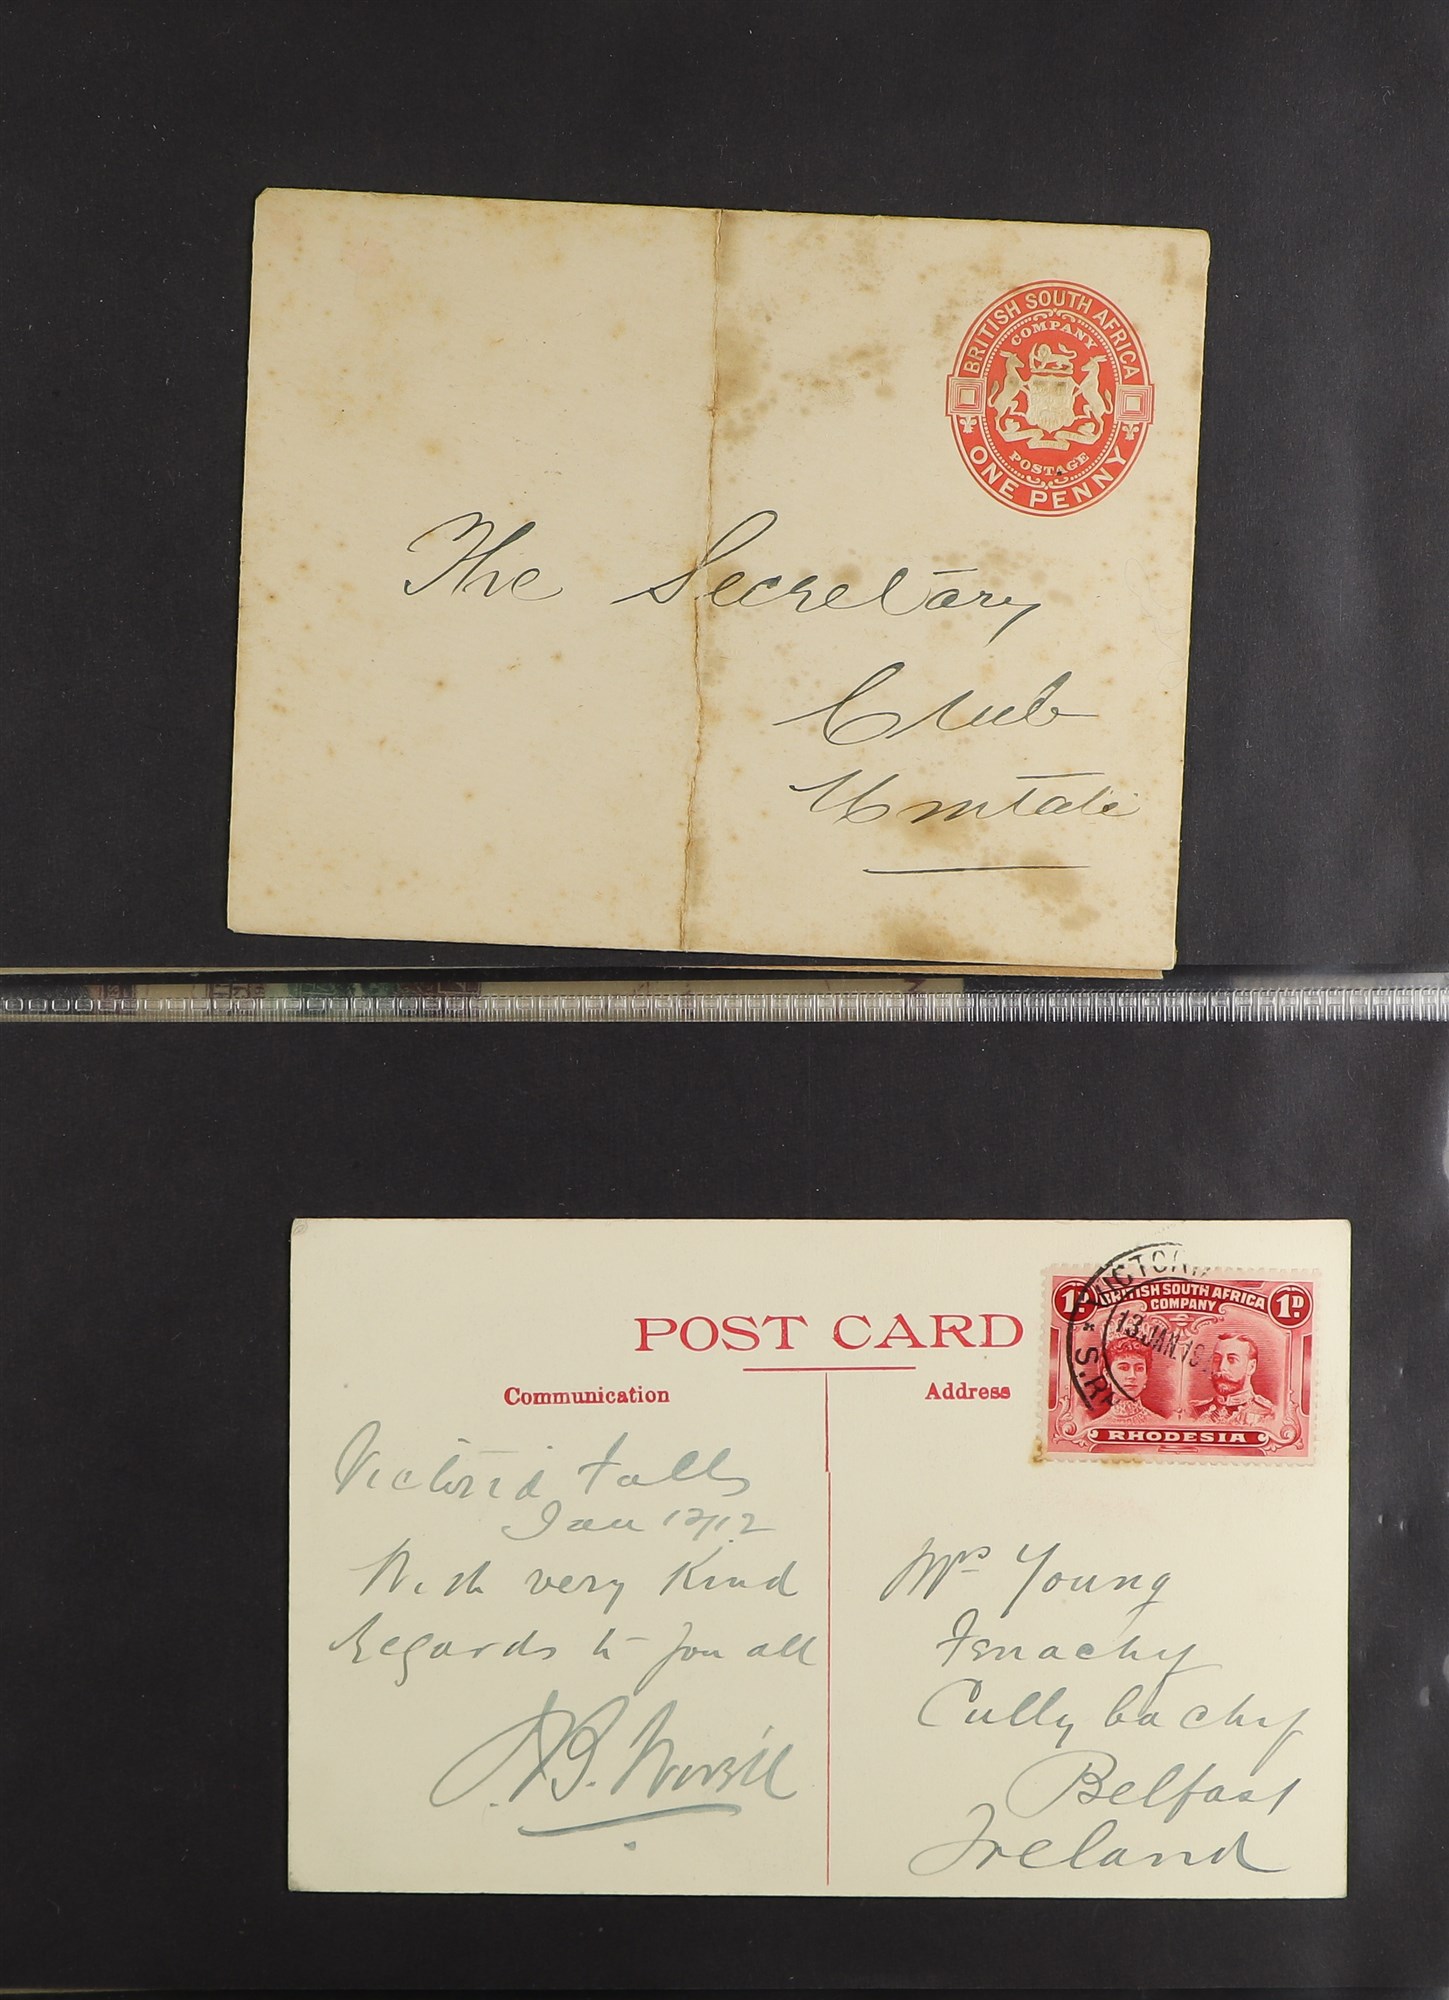 BRITISH SOUTH AFRICA
COMPANY
POSTAGE
ONE PENNY
The Secretary
Club
Umtali
POST CARD
Communication
Address
1D BRITISH SOUTH AFRICA 1D
COMPANY
RHODESIA
13 JAN 19
Victoria Falls
Jan 12/12
With very Kind
Regards to you all
Mrs Young
Fenachy
Cullybachy
Belfast
Ireland